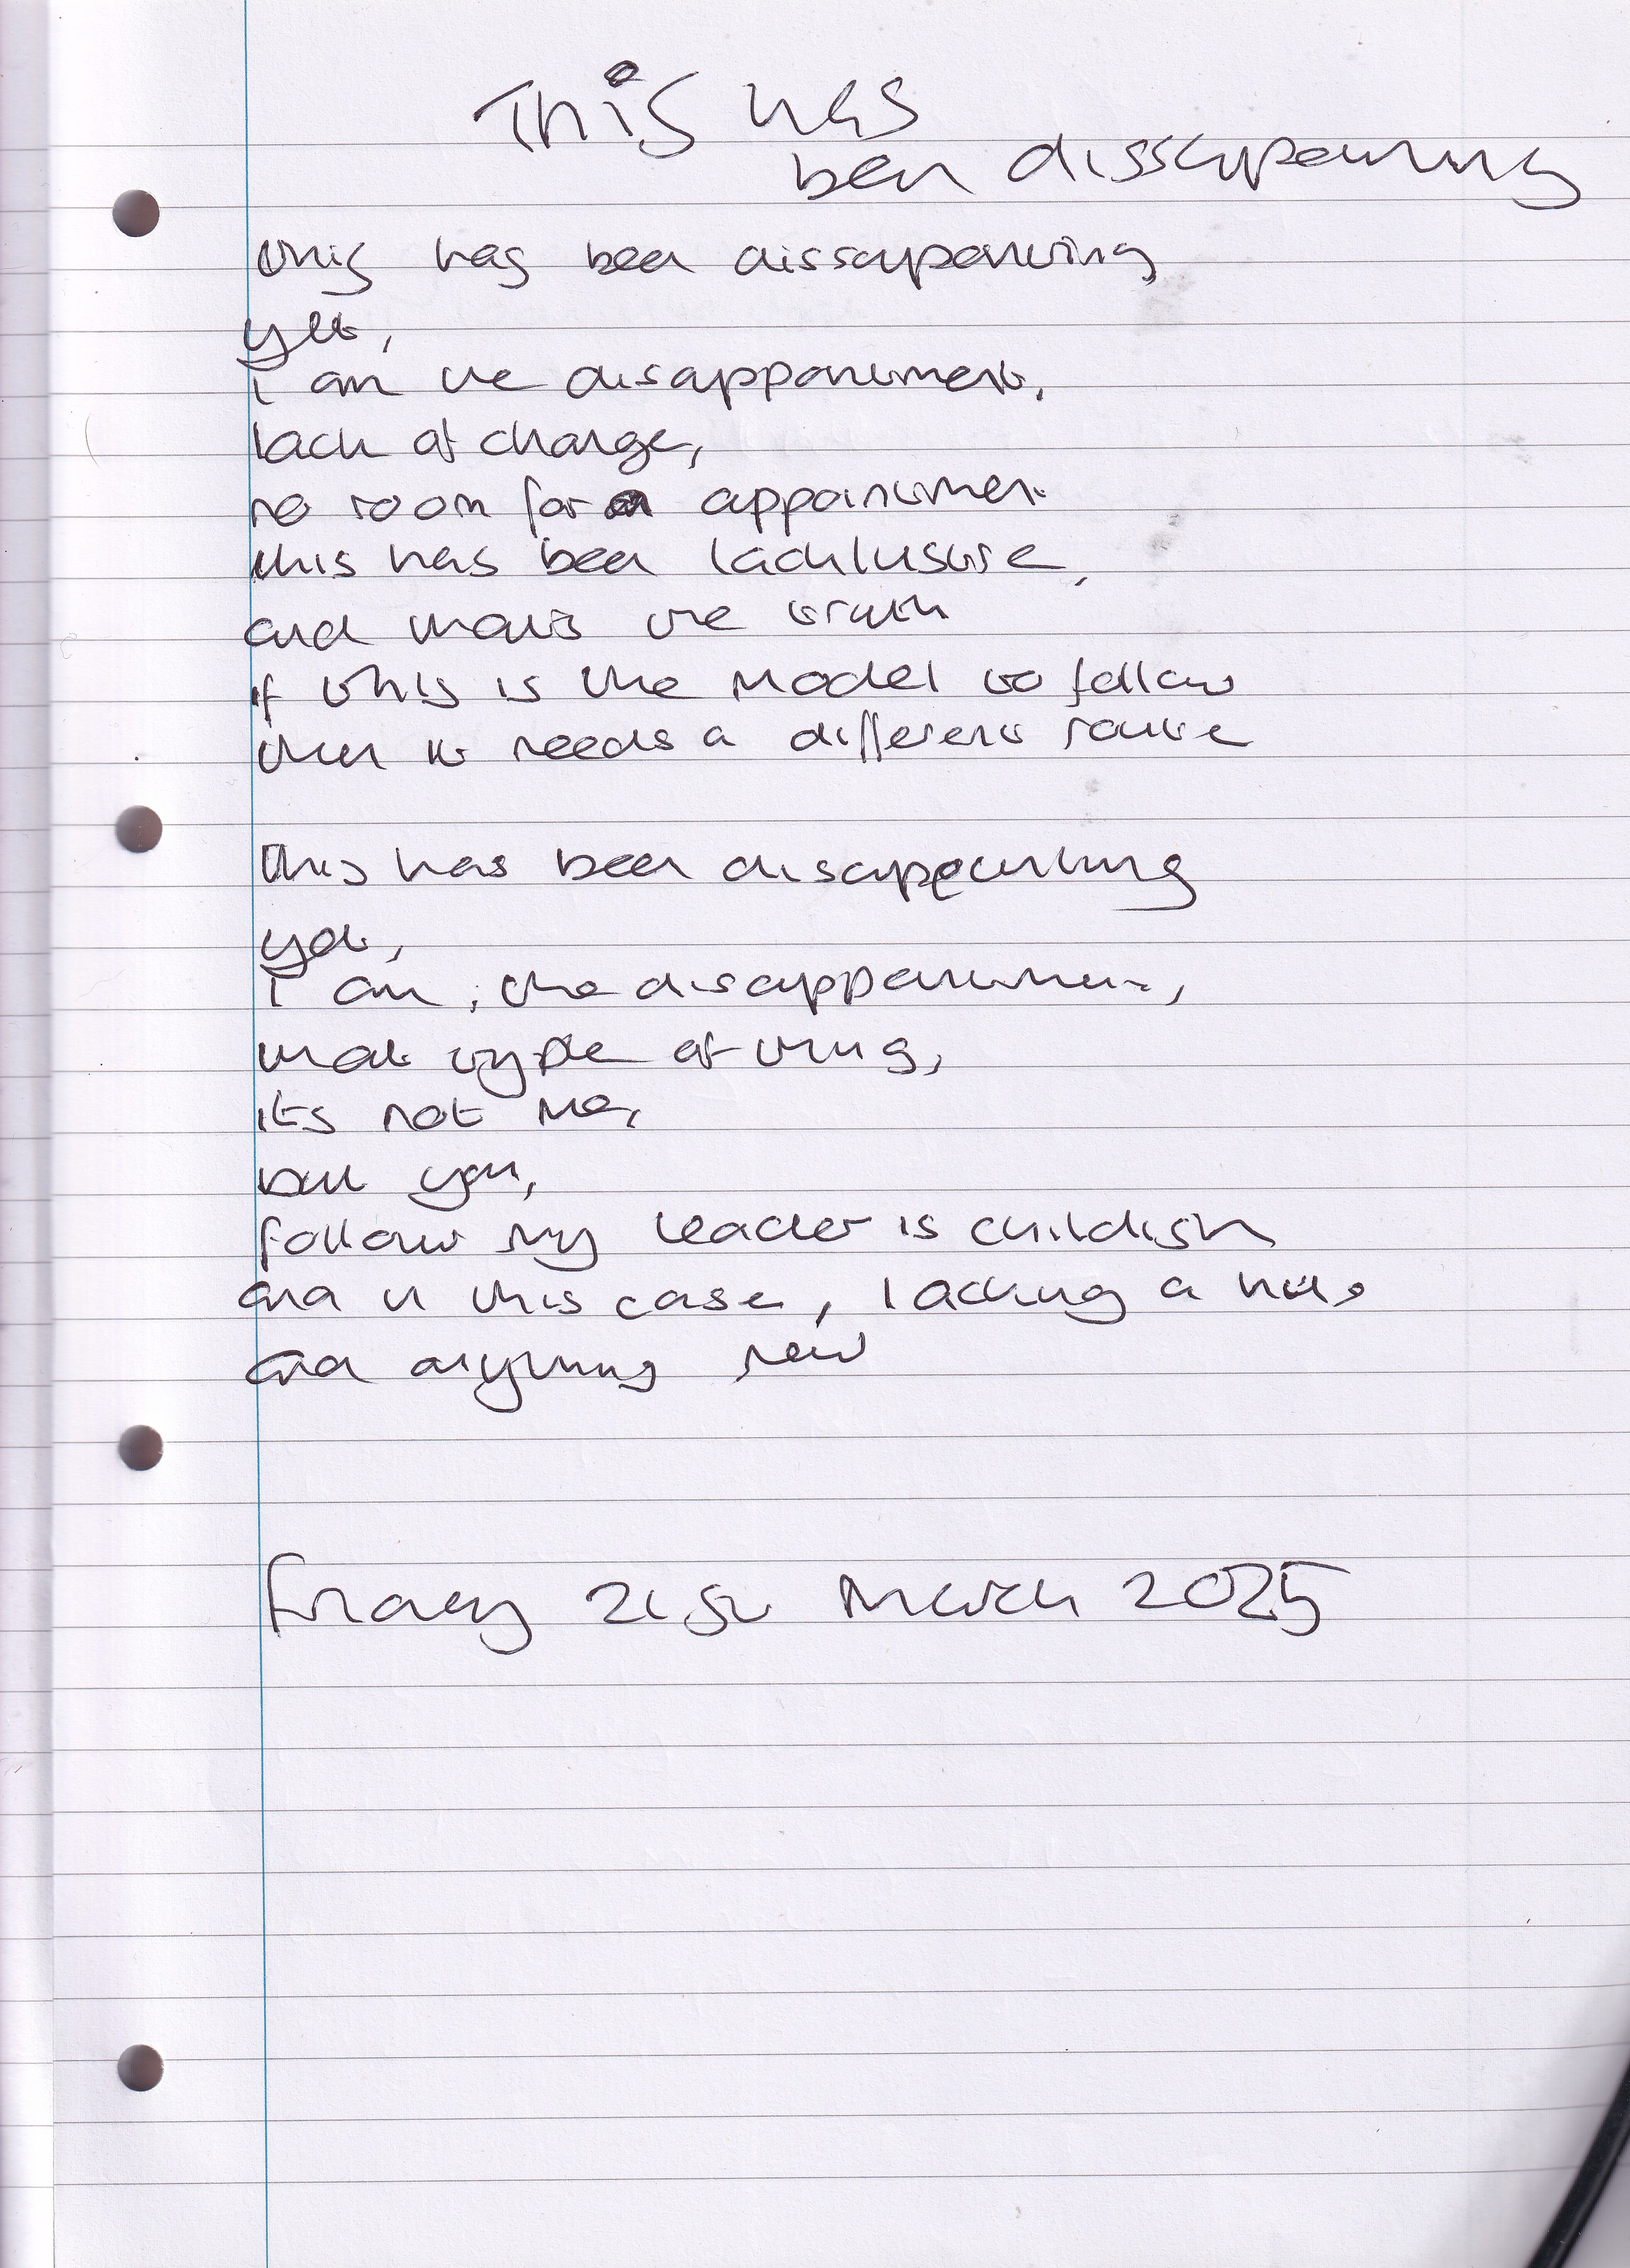 This has
been dissapointing
this has been dissapointing
yet,
I am the disappointment,
lack of change,
no room for appointment
this has been lacklustre,
and thats the truth
if this is the model to follow
then it needs a different route
this has been disappointing
yet,
I am, the disappointment,
that type of thing,
its not me,
but you,
follow my leader is childish
and in this case, lacking a
and anything new
Friday 21st March 2025